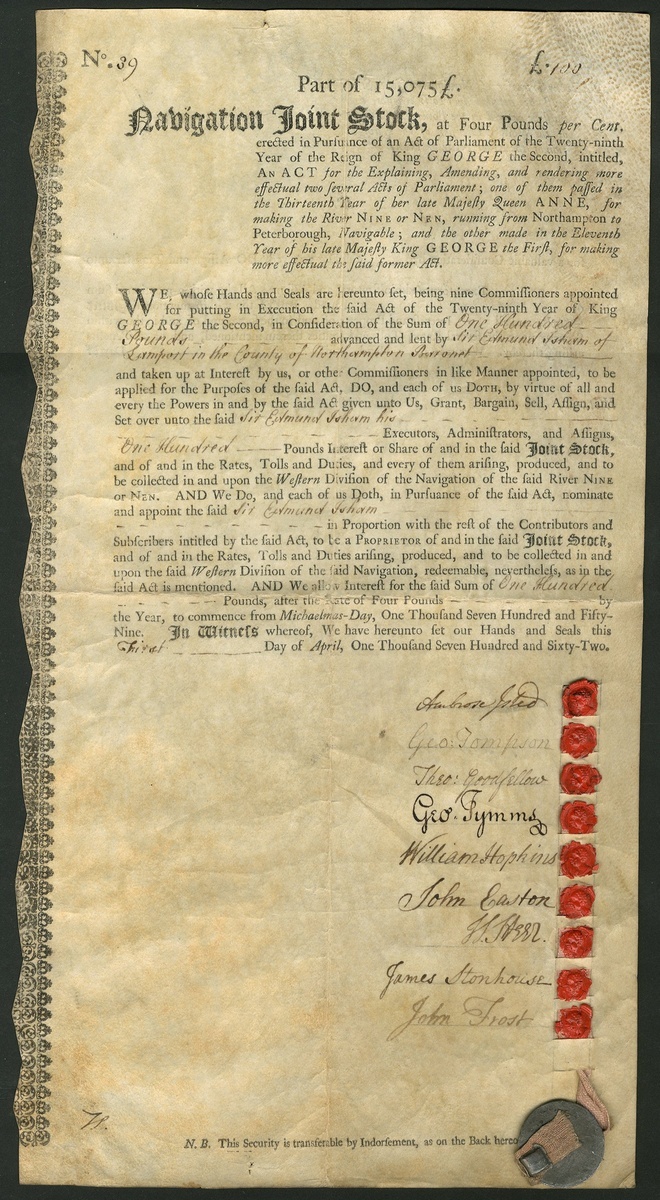 No. 39
£.100
Part of 15,075£.
Navigation Joint Stock, at Four Pounds per Cent.
erected in Purſuance of an Act of Parliament of the Twenty-ninth
Year of the Reign of King GEORGE the Second, intitled,
AN ACT for the Explaining, Amending, and rendering more
effectual two ſeveral Acts of Parliament; one of them paſſed in
the Thirteenth Year of her late Majeſty Queen ANNE, for
making the River NINE or NEN, running from Northampton to
Peterborough, Navigable; and the other made in the Eleventh
Year of his late Majeſty King GEORGE the Firſt, for making
more effectual the ſaid former Act.
WE, whoſe Hands and Seals are hereunto ſet, being nine Commiſſioners appointed
for putting in Execution the ſaid Act of the Twenty-ninth Year of King
GEORGE the Second, in Conſideration of the Sum of One Hundred
Pounds advanced and lent by Sir Edmund Isham of
Lamport in the County of Northampton Baronet
and taken up at Intereſt by us, or other Commiſſioners in like Manner appointed, to be
applied for the Purpoſes of the ſaid Act, DO, and each of us DOTH, by virtue of all and
every the Powers in and by the ſaid Act given unto Us, Grant, Bargain, Sell, Aſſign, and
Set over unto the ſaid Sir Edmund Isham his
Executors, Adminiſtrators, and Aſſigns,
One Hundred Pounds Intereſt or Share of and in the ſaid Joint Stock,
and of and in the Rates, Tolls and Duties, and every of them ariſing, produced, and to
be collected in and upon the Weſtern Diviſion of the Navigation of the ſaid River NINE
or NEN. AND We Do, and each of us Doth, in Purſuance of the ſaid Act, nominate
and appoint the ſaid Sir Edmund Isham
in Proportion with the reſt of the Contributors and
Subſcribers intitled by the ſaid Act, to be a PROPRIETOR of and in the ſaid Joint Stock,
and of and in the Rates, Tolls and Duties ariſing, produced, and to be collected in and
upon the ſaid Weſtern Diviſion of the ſaid Navigation, redeemable, nevertheleſs, as in the
ſaid Act is mentioned. AND We allow Intereſt for the ſaid Sum of One Hundred
Pounds, after the Rate of Four Pounds by
the Year, to commence from Michaelmas-Day, One Thouſand Seven Hundred and Fifty-
Nine. In Witneſs whereof, We have hereunto ſet our Hands and Seals this
First Day of April, One Thouſand Seven Hundred and Sixty-Two.
Ambrose Isted
Geo: Tompson
Theo: Goodfellow
Geo. Tymms
William Hopkins
John Easton
James Stonhouse
John Frost
N. B. This Security is transferable by Indorſement, as on the Back hereo